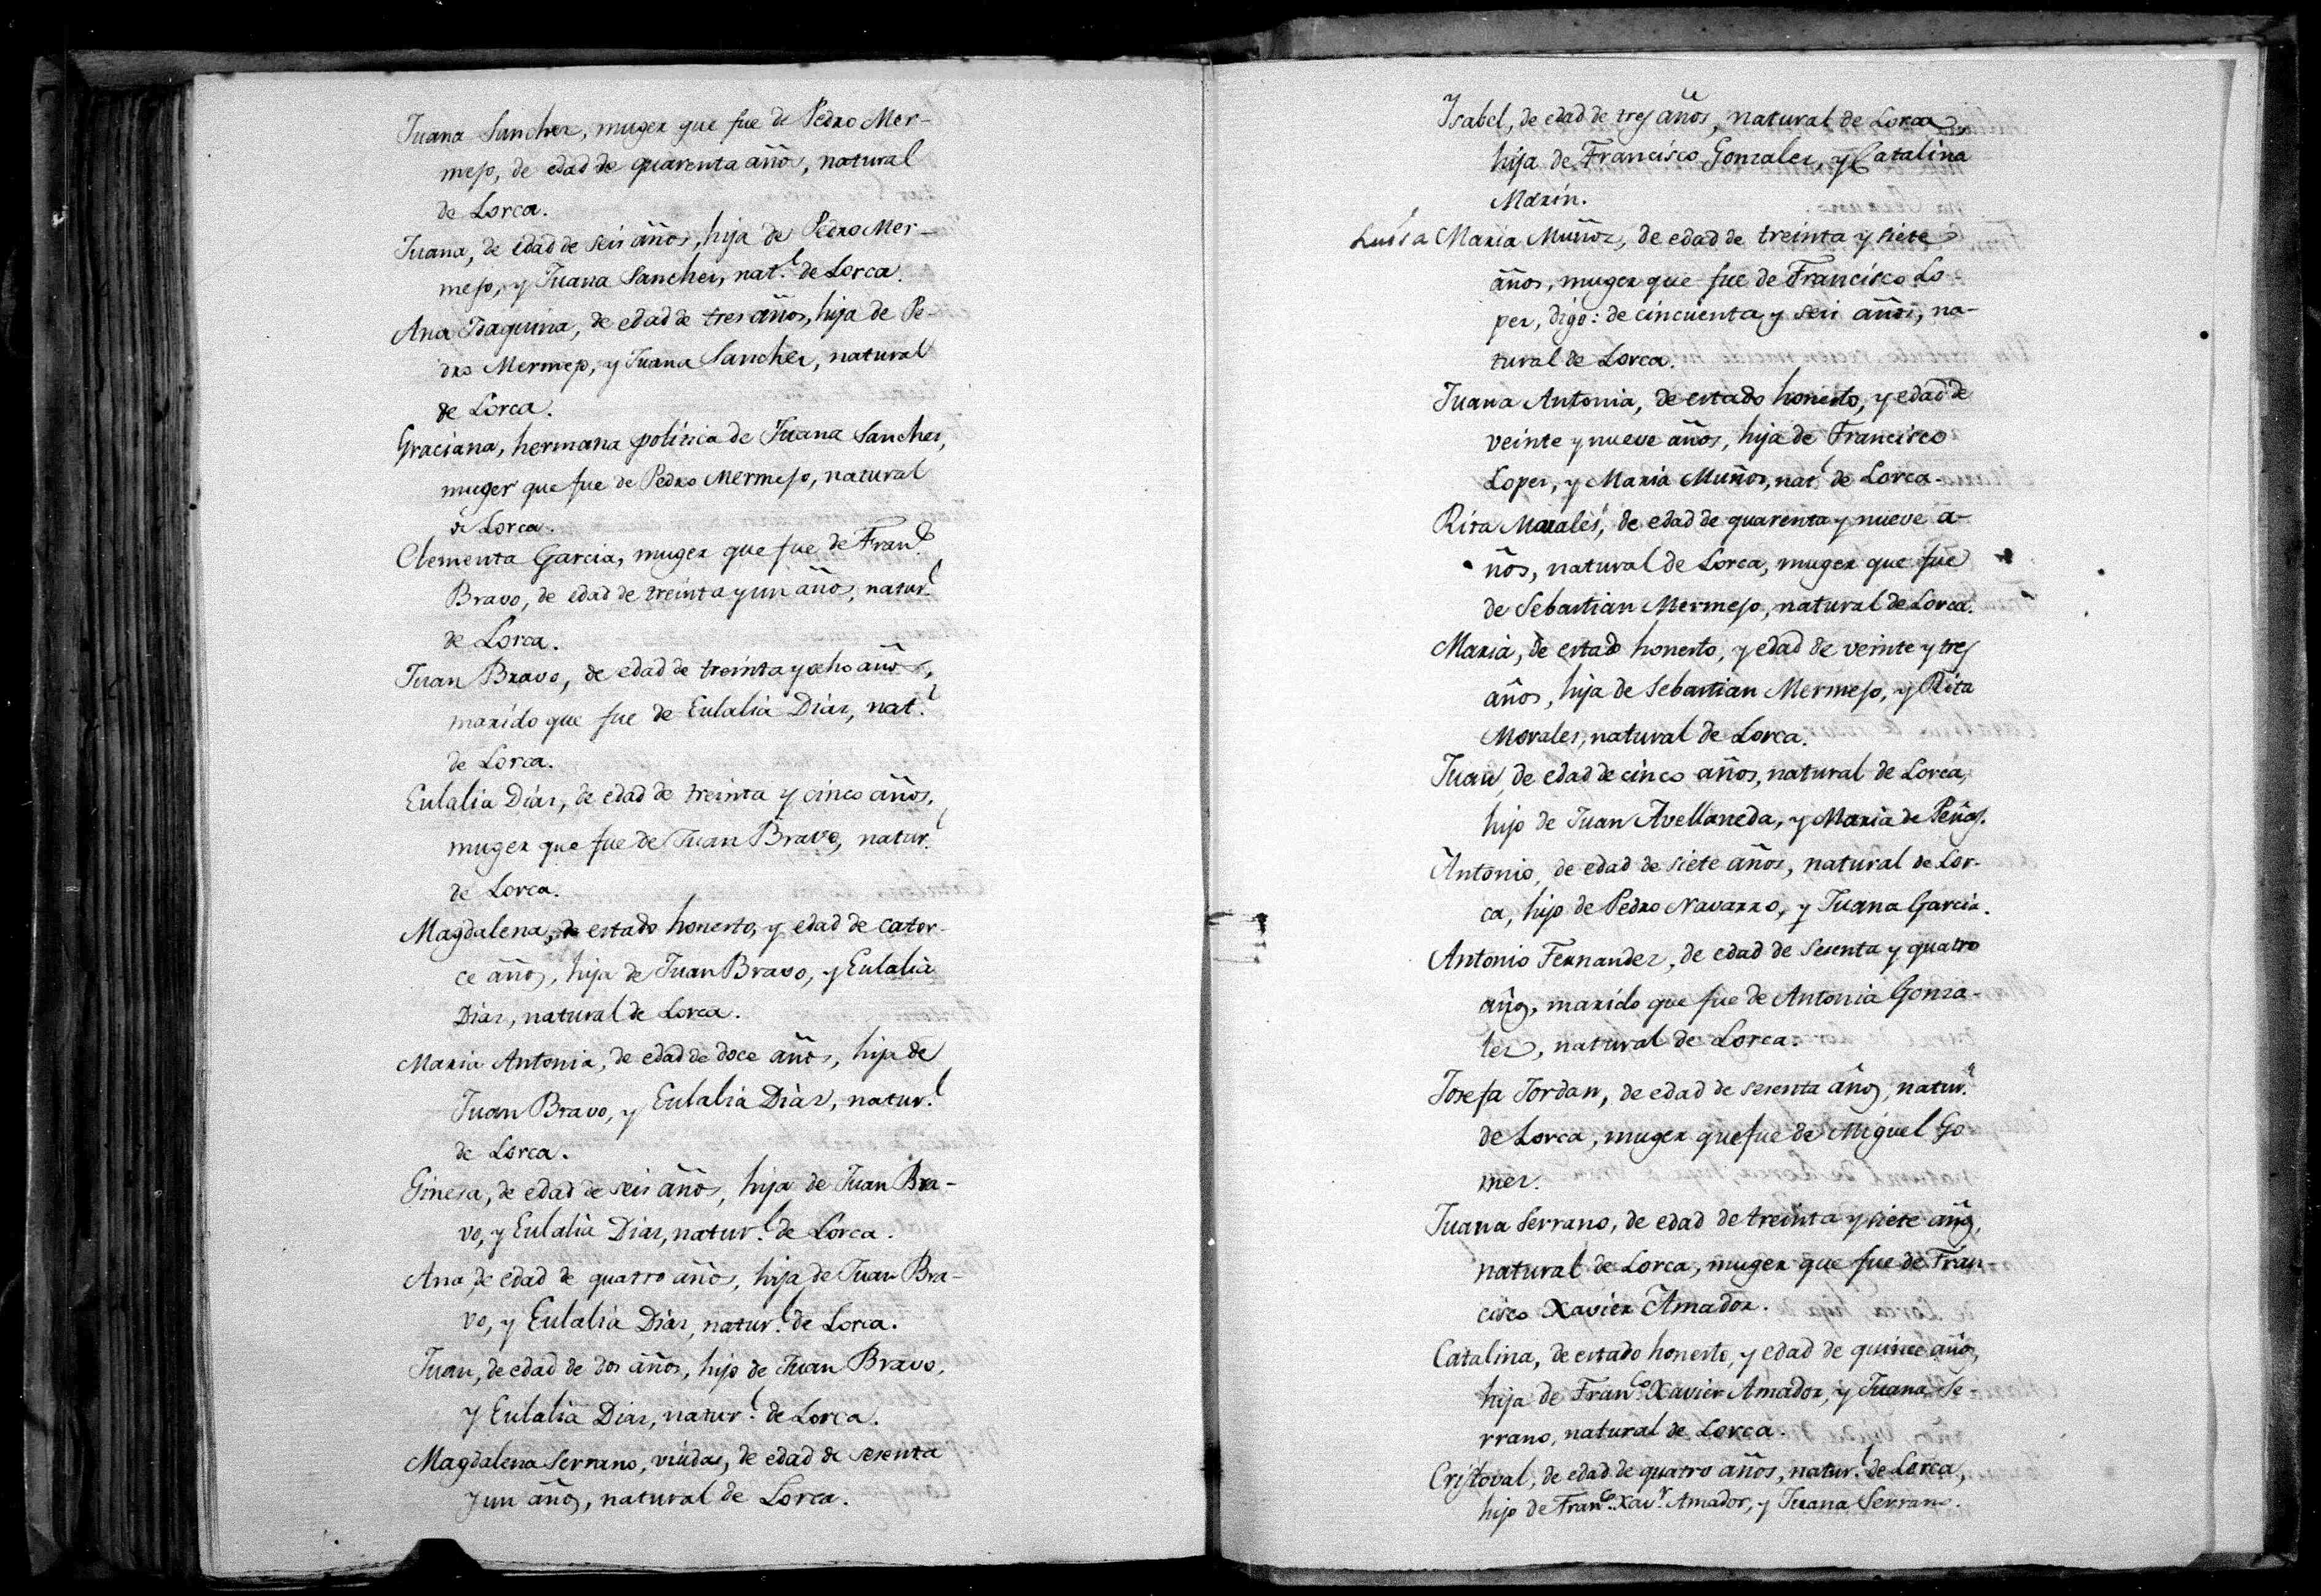 Juana Sanchez, muger que fue de Pedro Mer-
mejo, de edad de quarenta años, natural
de Lorca.
Juana, de edad de seis años, hija de Pedro Mer-
mejo, y Juana Sanchez, nat.l de Lorca.
Ana Joaquina, de edad de tres años, hija de Pe-
dro Mermejo, y Juana Sanchez, natural
de Lorca.
Graciana, hermana politica de Juana Sanchez,
muger que fue de Pedro Mermejo, natural
de Lorca.
Clementa Garcia, muger que fue de Fran.co
Bravo, de edad de treinta y un años, natur.l
de Lorca.
Juan Bravo, de edad de treinta y ocho años,
marido que fue de Eulalia Diaz, nat.l
de Lorca.
Eulalia Diaz, de edad de treinta y cinco años,
muger que fue de Juan Bravo, natur.l
de Lorca.
Magdalena, de estado honesto, y edad de cator-
ce años, hija de Juan Bravo, y Eulalia
Diaz, natural de Lorca.
Maria Antonia, de edad de doce años, hija de
Juan Bravo, y Eulalia Diaz, natur.l
de Lorca.
Ginesa, de edad de seis años, hija de Juan Bra-
vo, y Eulalia Diaz, natur.l de Lorca.
Ana, de edad de quatro años, hija de Juan Bra-
vo, y Eulalia Diaz, natur.l de Lorca.
Juan, de edad de dos años, hijo de Juan Bravo,
y Eulalia Diaz, natur.l de Lorca.
Magdalena Serrano, viuda, de edad de sesenta
y un años, natural de Lorca.
Ysabel, de edad de tres años, natural de Lorca
hija de Francisco Gonzalez, y Catalina
Marin.
Luisa Maria Muñoz, de edad de treinta y siete
años, muger que fue de Francisco Lo-
pez, digo: de cincuenta y seis años, na-
tural de Lorca.
Juana Antonia, de estado honesto, y edad de
veinte y nueve años, hija de Francisco
Lopez, y Maria Muñoz, nat.l de Lorca.
Rita Morales, de edad de quarenta y nueve a-
ños, natural de Lorca, muger que fue
de Sebastian Mermejo, natural de Lorca.
Maria, de estado honesto, y edad de veinte y tres
años, hija de Sebastian Mermejo, y Rita
Morales, natural de Lorca.
Juan, de edad de cinco años, natural de Lorca,
hijo de Juan Avellaneda, y Maria de Peñas.
Antonio, de edad de siete años, natural de Lor-
ca, hijo de Pedro Navarro, y Juana Garcia.
Antonio Fernandez, de edad de sesenta y quatro
años, marido que fue de Antonia Gonza-
lez, natural de Lorca.
Josefa Jordan, de edad de sesenta años, natur.l
de Lorca, muger que fue de Miguel Go
mez.
Juana Serrano, de edad de treinta y siete años,
natural de Lorca, muger que fue de Fran-
cisco Xavier Amador.
Catalina, de estado honesto, y edad de quince años,
hija de Fran.co Xavier Amador, y Juana Se-
rrano, natural de Lorca.
Cristoval, de edad de quatro años, natur.l de Lorca,
hijo de Fran.co Xav.r Amador, y Juana Serrano.